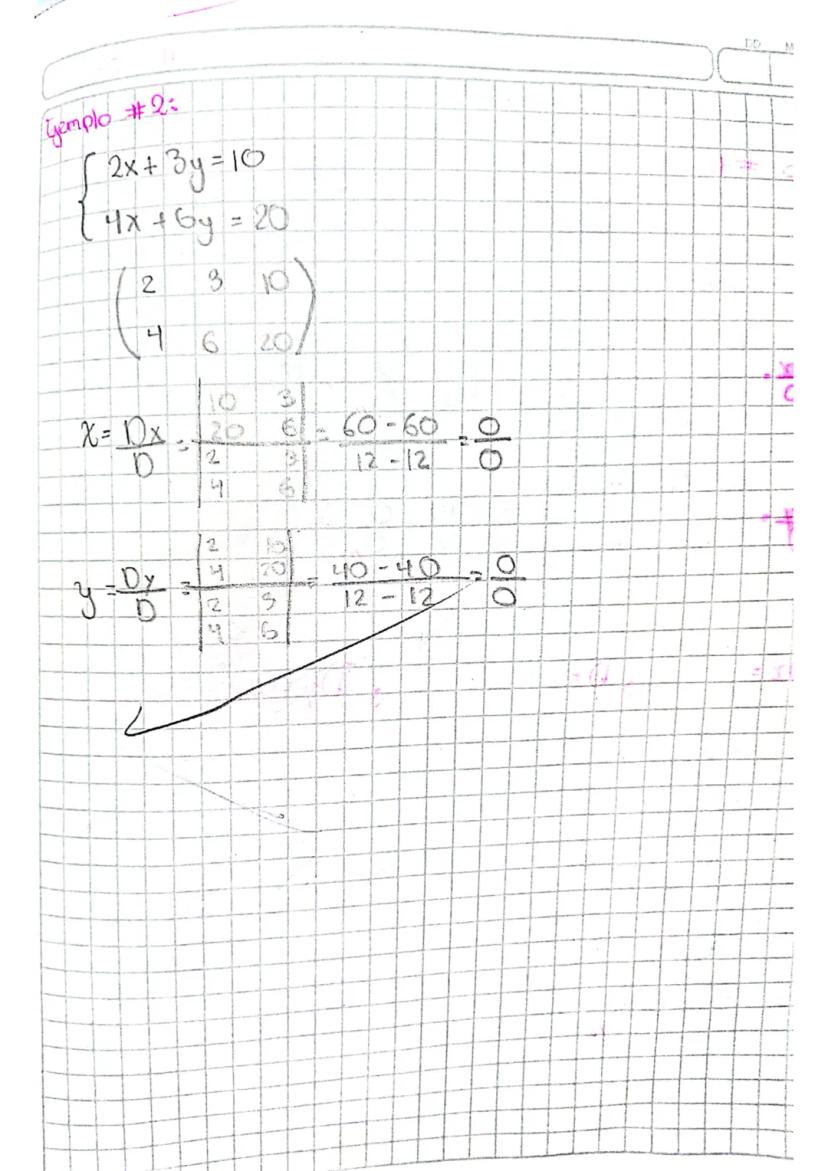 Ejemplo #2:
2x + 3y = 10
4x + 6y = 20
2 3 10
4 6 20
x = Dx/D = |10 3 20 6| / |2 3 4 6| = 60 - 60 / 12 - 12 = 0/0
y = Dy/D = |2 10 4 20| / |2 3 4 6| = 40 - 40 / 12 - 12 = 0/0